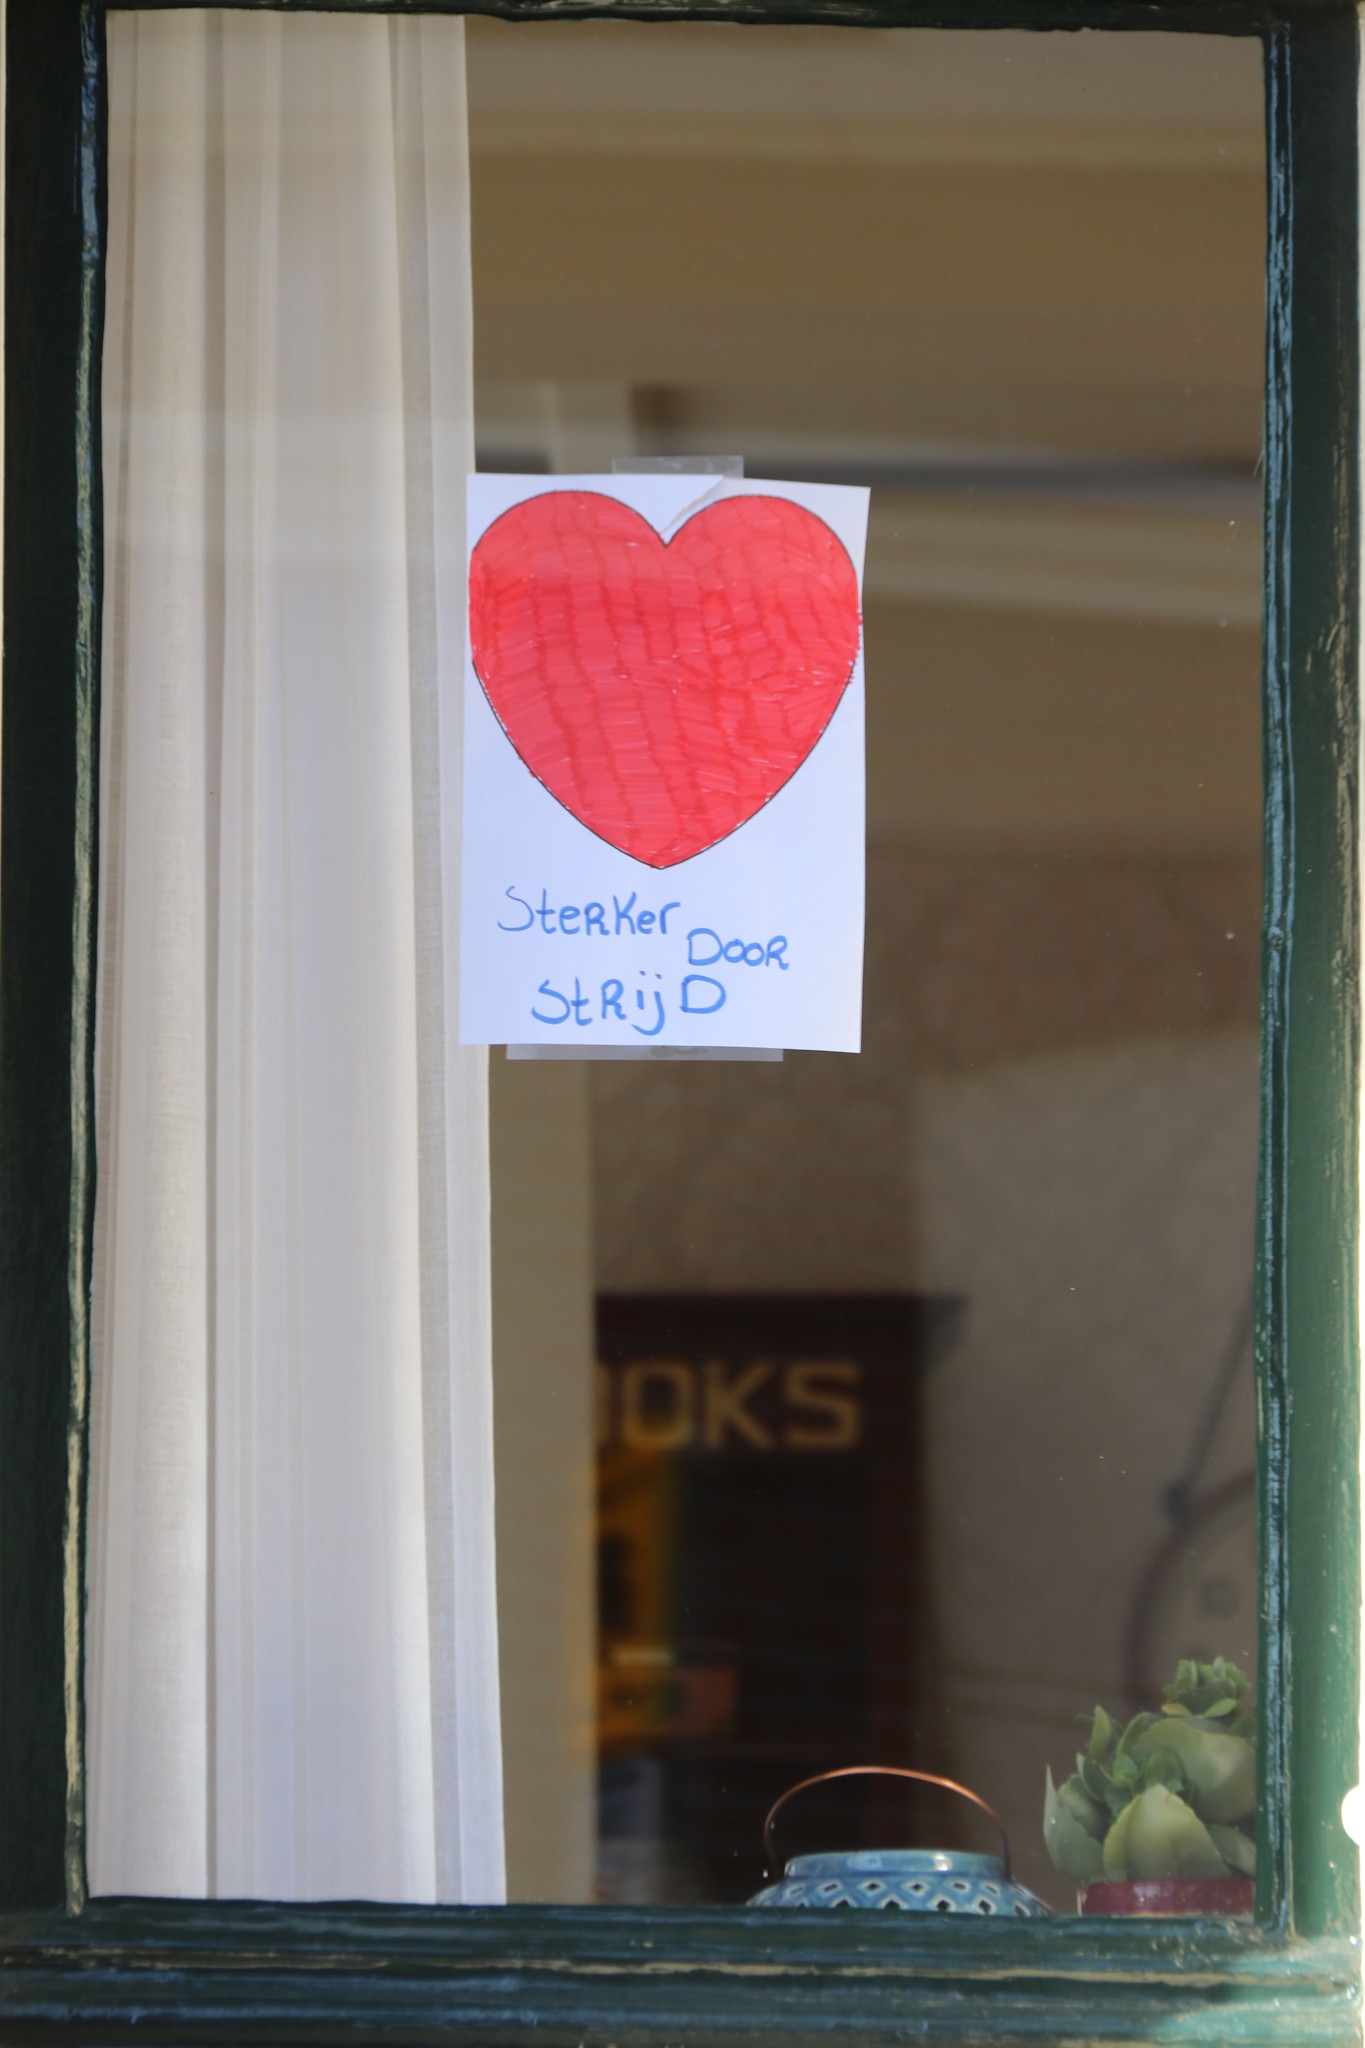 SterKer
DOOR
StRijD
OOKS